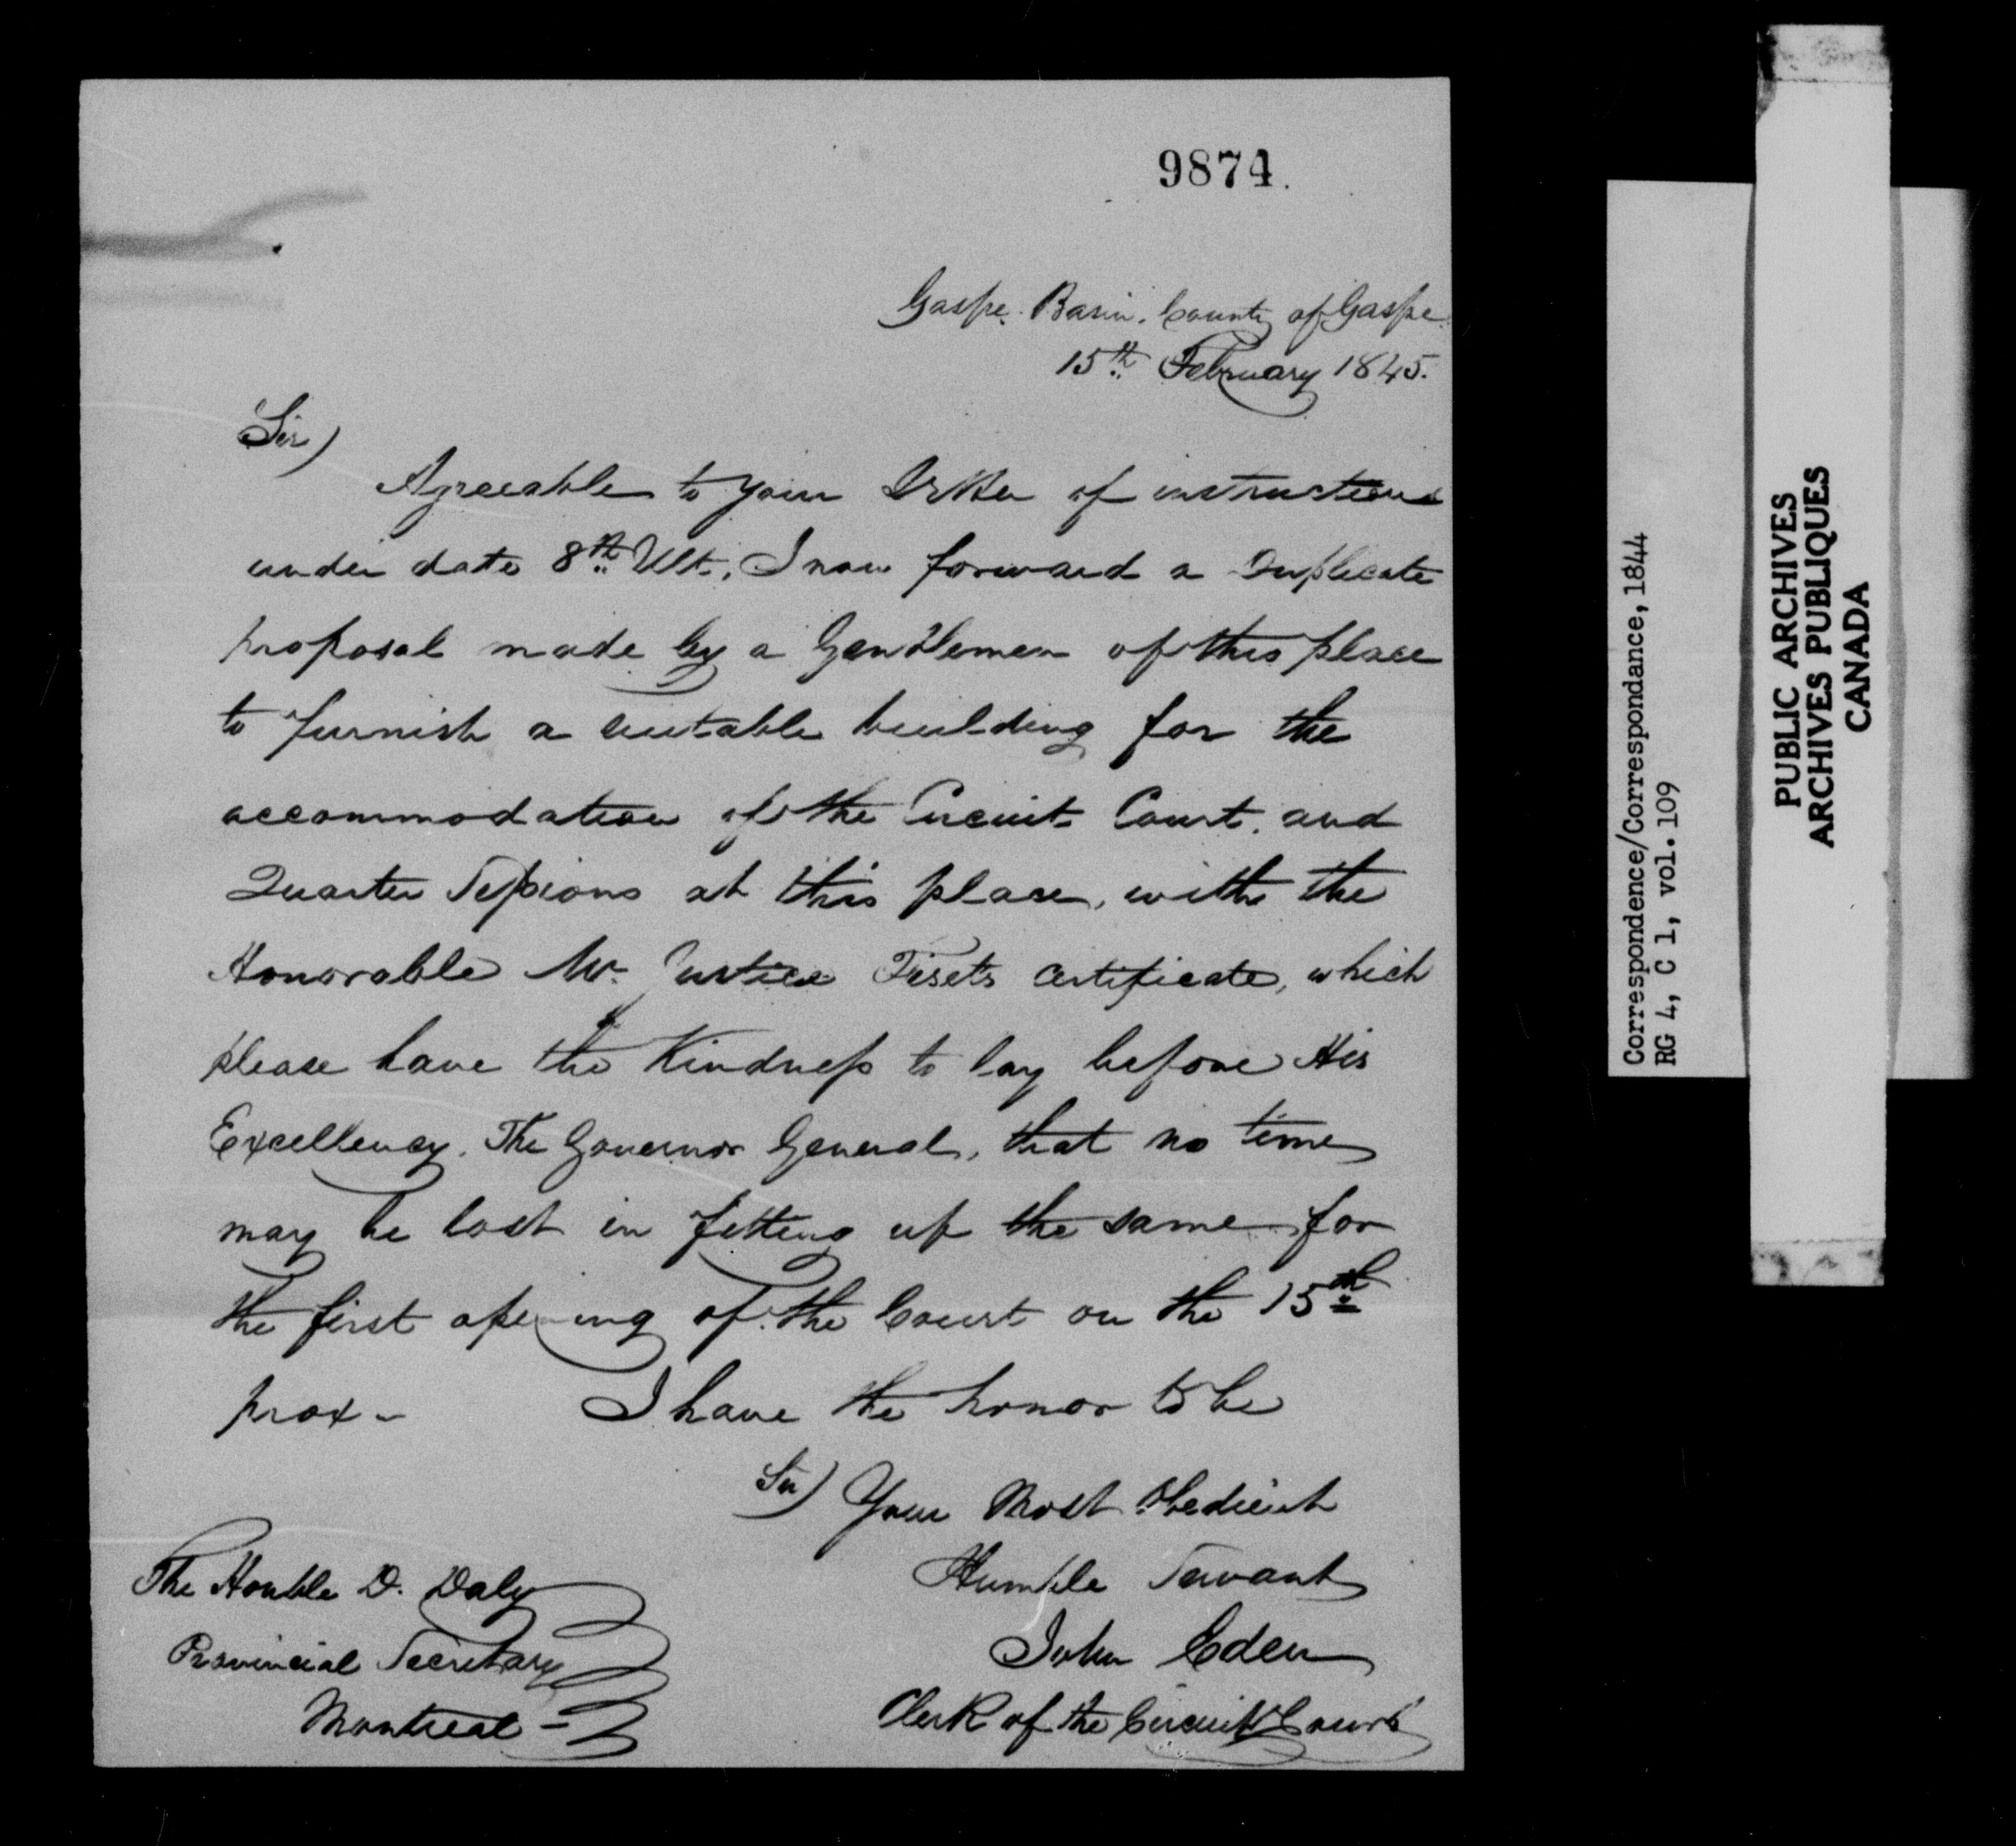 9874.
Gaspe Basin. County of Gaspe
15th February 1845.
Sir)
Agreeable to your letter of instructions
under date 8th Ult., I now forward a Duplicate
proposal made by a Gentlemen of this place
to furnish a suitable building for the
accommodation of the Circuit Court. and
Quarter Sessions at this place, with the
Honorable Mr. Justice Fisets certificate, which
please have the Kindness to lay before His
Excellency. The Governor General, that no time
may be lost in fitting up the same for
the first opening of the Court on the 15th
prox - I have the honor to be
Sir) Your Most Obedient
Humble Servant
John Eden
Clerk of the Circuit Court
The Honble D. Daly
Provincial Secretary
Montreal -
Correspondence/Correspondance, 1844
RG 4, C 1, vol. 109
PUBLIC ARCHIVES
ARCHIVES PUBLIQUES
CANADA